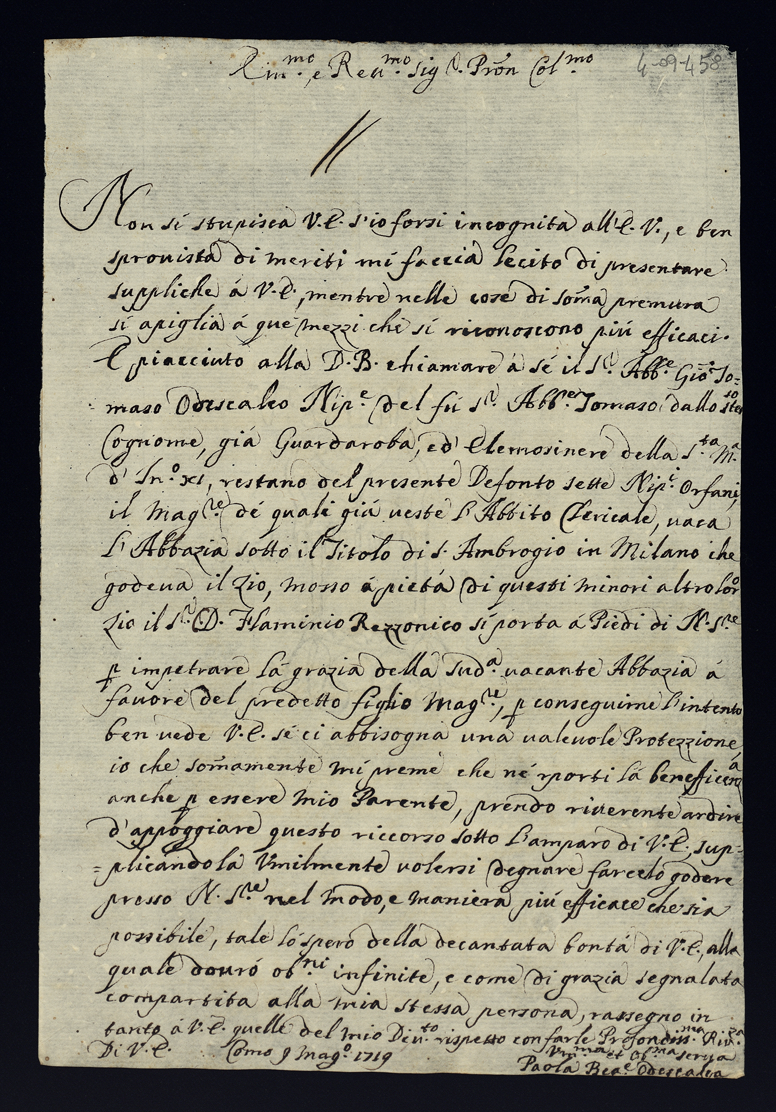 Em.mo e Reu.mo Sig.r Prõn Col.mo
4-09-458
Non si stupisca V.E. s'io forsi incognita all'E.V., e ben
sprouista di meriti mi faccia lecito di presentare
suppliche á V.E., mentre nelle cose di som̃a premura
si apiglia á que mezzi che si riconoscono più efficaci.
É piacciuto alla D.B. chiamare á sé il S.r Abb.e Gio: To=
maso Odescalco Nip.e del fù S.r Abb.e Tomaso dallo stesso
Cognome, giá Guardaroba, ed' Elemosinere della S.ta M.a
d' In.o XI, restano del presente Defonto sette Nip.i Orfani,
il Mag.re dé quali giá veste l'Abbito Clericale, uaca
l'Abbazia sotto il Titolo di S. Ambrogio in Milano che
godeua il Zio, mosso á pietá di questi minori altro lor
Zio il S.r D. Flaminio Rezzonico si porta á Piedi di N. S.re
p impetrare la grazia della sud.a uacante Abbazia á
fauore del predetto figlio Mag.re, p conseguirne l'intento
ben uede V.E. se ci abbisogna una ualeuole Protezzione
io che som̃amente mi preme che ne rporti la beneficenza
anche p essere mio Parente, prendo riuerente ardire
d'appoggiare questo riccorso sotto l'amparo di V.E., sup=
=plicandola Vmilmente uolersi degnare farcelo godere
presso N. S.re nel modo, e maniera più efficace che sia
possibile, tale lo spero della decantata bontá di V.E., alla
quale douró ob.ni infinite, e come di grazia segnalata
compartita alla mia stessa persona, rassegno in
tanto á V.E. quelle del mio Deu.to rispetto con farle Profondiss.ma Riu.za
Di V.E. Como 9 Mag.o 1719
Vm.ma et Ob.ma serua
Paola Bea.e Odescalca